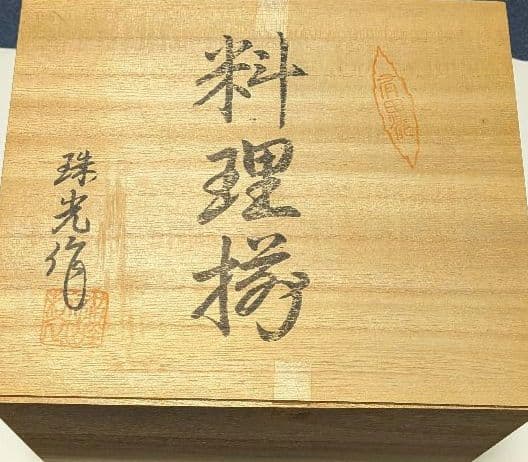 料理揃
珠光作